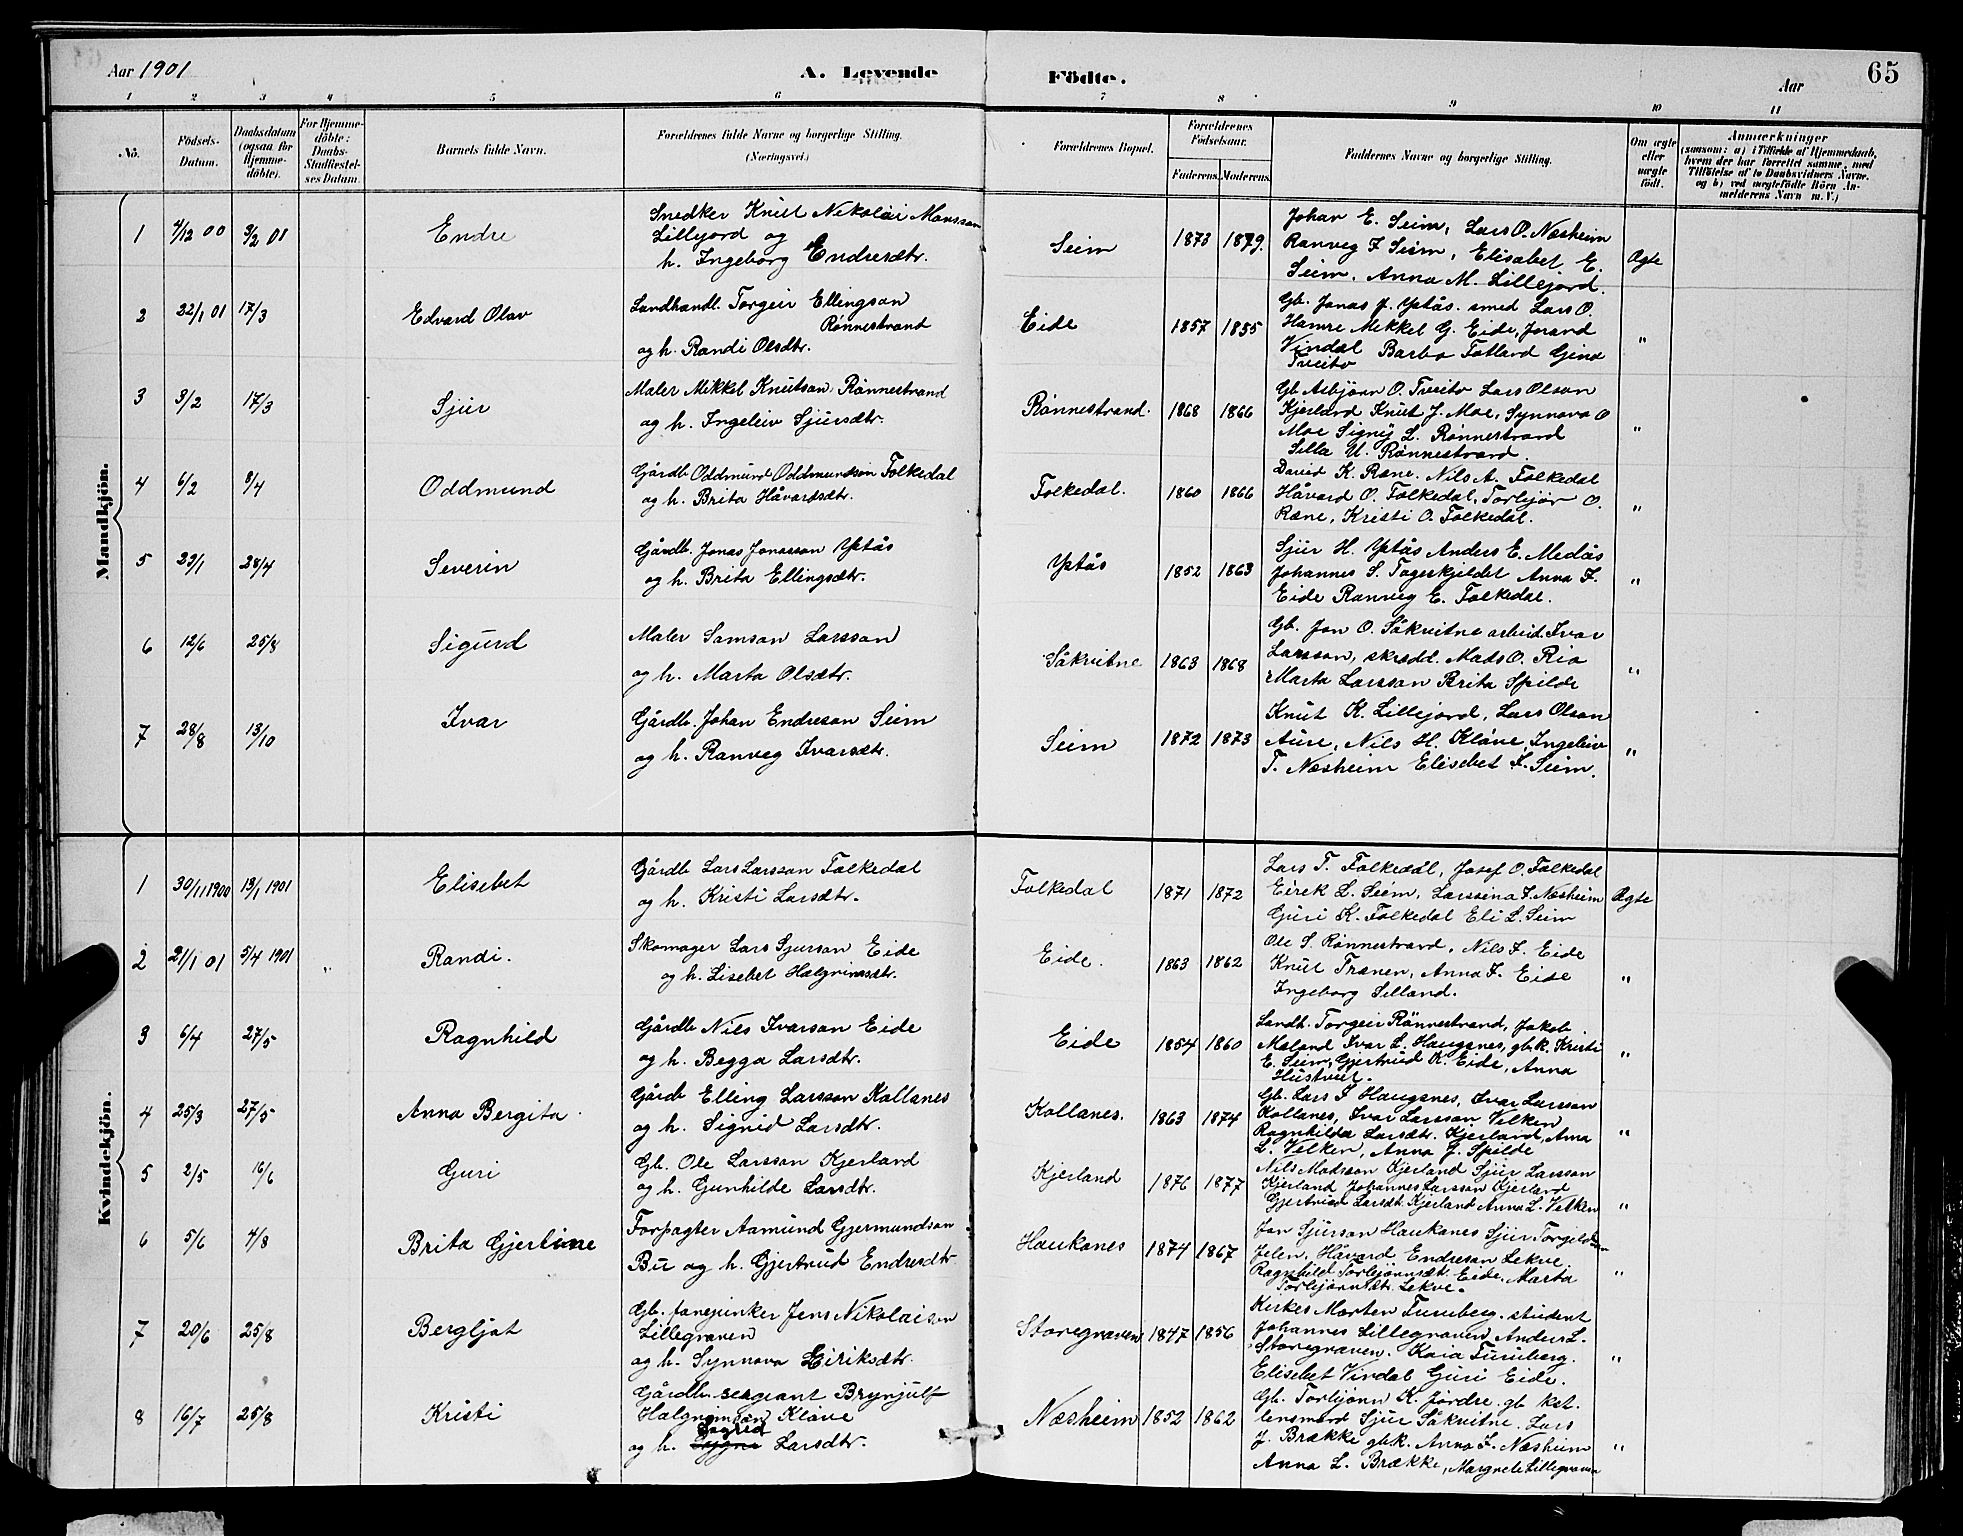 Aar 1901
A. Levende
Födte.
Aar
65
1 2 3 4 5 6 7 8 9 10 11
No.
Födsels-
Datum.
Daabsdatum
(ogsaa for
Hjemme-
döbte).
For Hjemme-
döbte:
Daabs-
Stadfæstel-
ses Datum.
Barnets fulde Navn.
Forældrenes fulde Navne og borgerlige Stilling.
(Næringsvei.)
Forældrenes Bopæl.
Forældrenes
Födselsaar.
Faderens. Moderens.
Faddernes Navne og borgerlige Stilling.
Om ægte
eller
uægte
födt.
Anmærkninger
(saasom: a) i Tilfælde af Hjemmedaab,
hvem der har forrettet samme, med
Tilföielse af to Daabsvidners Navne,
og b) ved uægtefödte Börn An-
melderens Navn m. V.)
Mandkjön.
1 4/12 00 3/2 01
Endre
Snedker Knut Nikolai Monsson
Lillejord og
h. Ingeborg Endresdtr.
Seim
1873 1879.
Johan E. Seim, Lars O. Næsheim
Ranveg I Seim, Elisabet E.
Seim, Anna M. Lillejord.
Ægte
2 22/1 01 17/3
Edvard Olav
Landhandl. Torgeir Ellingson
Rønnestrand
og h. Randi Olsdtr.
Eide
1857 1855
Gb. Jonas J. Ystås. smed Lars O.
Hamre Mikkel G. Eide, Jorand
Vindal Barbo Fotland Gina
Tveito
"
3 3/2 17/3
Sjur
Maler Mikkel Knutson Rønnestrand
og h. Ingeleiv Sjursdtr.
Rønnestrand.
1868 1866
Gb Asbjørn O. Tveito Lars Olson
Kjerland Knut J. Moe, Synnova O
Moe Signy L. Rønnestrand
Silla U. Rønnestrand.
"
4 6/2 8/4
Oddmund
Gårdb Oddmund Oddmundson Folkedal
og h. Brita Håvardsdtr.
Folkedal.
1860 1866
David K. Ræne. Nils A. Folkedal
Håvard O. Folkedal, Torbjør O.
Ræne, Kristi O. Folkedal.
"
5 23/1 28/4
Severin
Gårdb. Jonas Jonasson Ystås
og h. Brita Ellingsdtr.
Ystås
1852 1863
Sjur H. Ystås Anders E. Medås
Johannes S. Tageskjeldet Anna I.
Eide Ranveg E. Folkedal.
"
6 12/6 25/8
Sigurd
Maler Samson Larsson
og h. Marta Olsdtr.
Såkvitne
1863 1868
Gb. Jon O. Såkvitne arbeid. Ivar
Larsson, skrædd. Mads O. Rio
Marta Larsson Brita Spilde
"
7 28/8 13/10
Ivar
Gårdb. Johan Endreson Seim
og h. Ranveg Ivarsdtr.
Seim
1872 1873
Knut K. Lillejord, Lars Olson
Aure, Nils H. Kløve, Ingeleiv
T. Næsheim Elisebet I. Seim.
"
Kvindekjön.
1 30/11 1900 13/1 1901
Elisebet
Gårdb Lars Larsson Folkedal
og h. Kristi Larsdtr.
Folkedal
1871 1872
Lars T. Folkedal, Josef O. Folkedal
Eirek L. Seim, Larssina I. Næsheim
Guri K. Folkedal Eli L. Seim
Ægte
2 21/1 01 5/4 1901 "
Randi.
Skomager Lars Sjurson Eide
og h. Lisebet Halgrimsdtr.
Eide.
1863 1862
Ole S. Rønnestrand, Nils I. Eide
Knut Tranen, Anna I. Eide
Ingeborg Selland.
"
3 6/4 27/5
Ragnhild
Gårdb Nils Ivarson Eide
og h. Begga Larsdtr.
Eide
1854 1860
Landh. Torgeir Rønnestrand, Jakob
Maland Ivar L. Haugsnes, gbk. Kristi
E. Seim, Gjertrud K. Eide, Anna
Hustveit.
"
4 25/3 27/5
Anna Bergita
Gårdb Elling Larsson Kollanes
og h. Sigrid Larsdtr.
Kollanes.
1863 1874
Gb. Lars I Haugsnes, Ivar Larsson
Kollanes, Ivar Larsson Velken
Ragnhilda Larsdtr. Kjerland, Anna
L. Velken, Anna J. Spilde
"
5 2/5 16/6
Guri
Gb. Ole Larsson Kjerland
og h. Gunhilde Larsdtr.
Kjerland
1876 1877
Nils Madsson Kjerland Sjur Larsson
Kjerland Johannes Larsson Kjerland
Gjertrud Larsdt. Kjerland Anna L. Velken
"
6 5/6 4/8
Brita Gjertine
Forpagter Aamund Gjermundson
Bu og h. Gjertrud Endresdtr
Haukanes
1874 1867
Jon Sjurson Haukanes Sjur Torgeldson
Jelen, Håvard Endreson Lekve
Ragnhild Torbjørnsdt. Eide, Marta
Torbjørnsdt. Lekve.
"
7 20/6 25/8
Bergljot
Gb. fanejunker Jens Nikolaison
Lillegraven
og h. Synnova Eiriksdtr.
Storegraven
1847 1856
Kirkes Morten Furuberg. student
Johannes Lillegraven Anders L.
Storegraven. Kaia Furuberg.
Elisebet Vindal Guri Eide.
"
8 16/7 25/8
Kristi
Gårdb sergeant Brynjulf
Halgrimson Kløve
Sigrid
og h. Larsdtr.
Næsheim
1852 1862
Gb. Torbjørn K. Jordre. gb kst.
lensmand Sjur Såkvitne. Lars
J. Brække gbk. Anna I. Næsheim
Anna L. Brække, Margrete Lillegraven
"